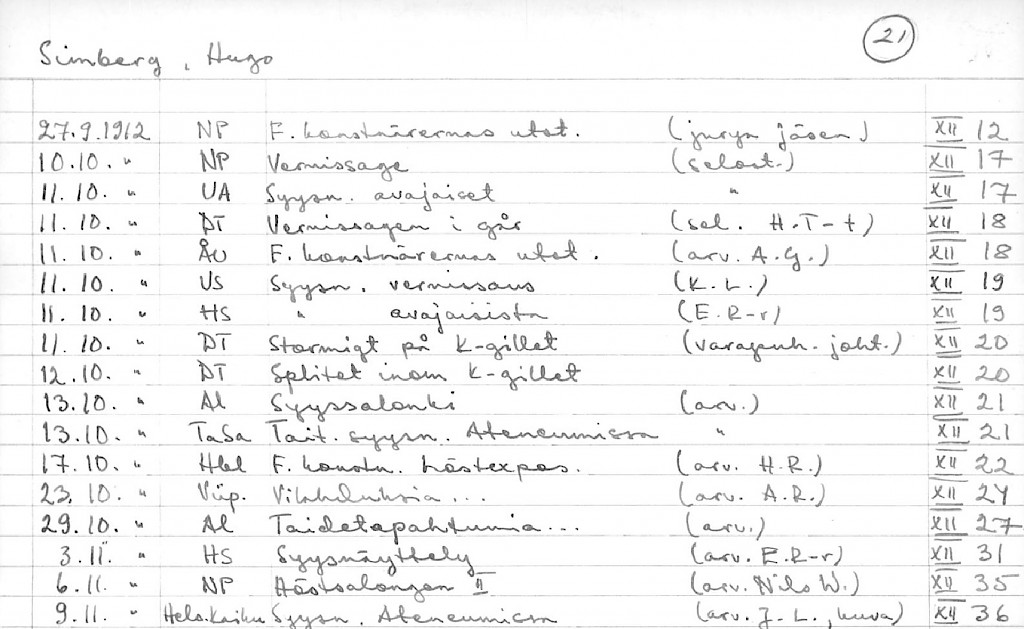 21
Simberg, Hugo
27.9.1912 NP F. konstnärernas utst. (juryn jäsen) XII 12
10.10. " NP Vernissage (selost.) XII 17
11.10. " UA Syysn. avajaiset " XII 17
11.10. " DT Vernissagen i går (sel. H.T-t) XII 18
11.10. " ÅU F. konstnärernas utst. (arv. A.G.) XII 18
11.10. " US Syysn. vernissaus (K.L.) XII 19
11.10. " HS " avajaisista (E.R-r) XII 19
11.10. " DT Stormigt på K-gillet (varapuh. joht.) XII 20
12.10. " DT Splitet inom K-gillet XII 20
13.10. " Al Syyssalonki (arv.) XII 21
13.10. " TaSa Tait. syysn. Ateneumissa " XII 21
17.10. " Hbl F. konstn. höstexpos. (arv. H.R.) XII 22
23.10. " Viip. Vilahduksia... (arv. A.R.) XII 24
29.10. " Al Taidetapahtumia... (arv.) XII 27
3.11. " HS Syysnäyttely (arv. E.R-r) XII 31
6.11. " NP Höstsalongen II (arv. Nils W.) XII 35
9.11. " Hels.Kaiku Syysn. Ateneumissa (arv. J.L., kuva) XII 36